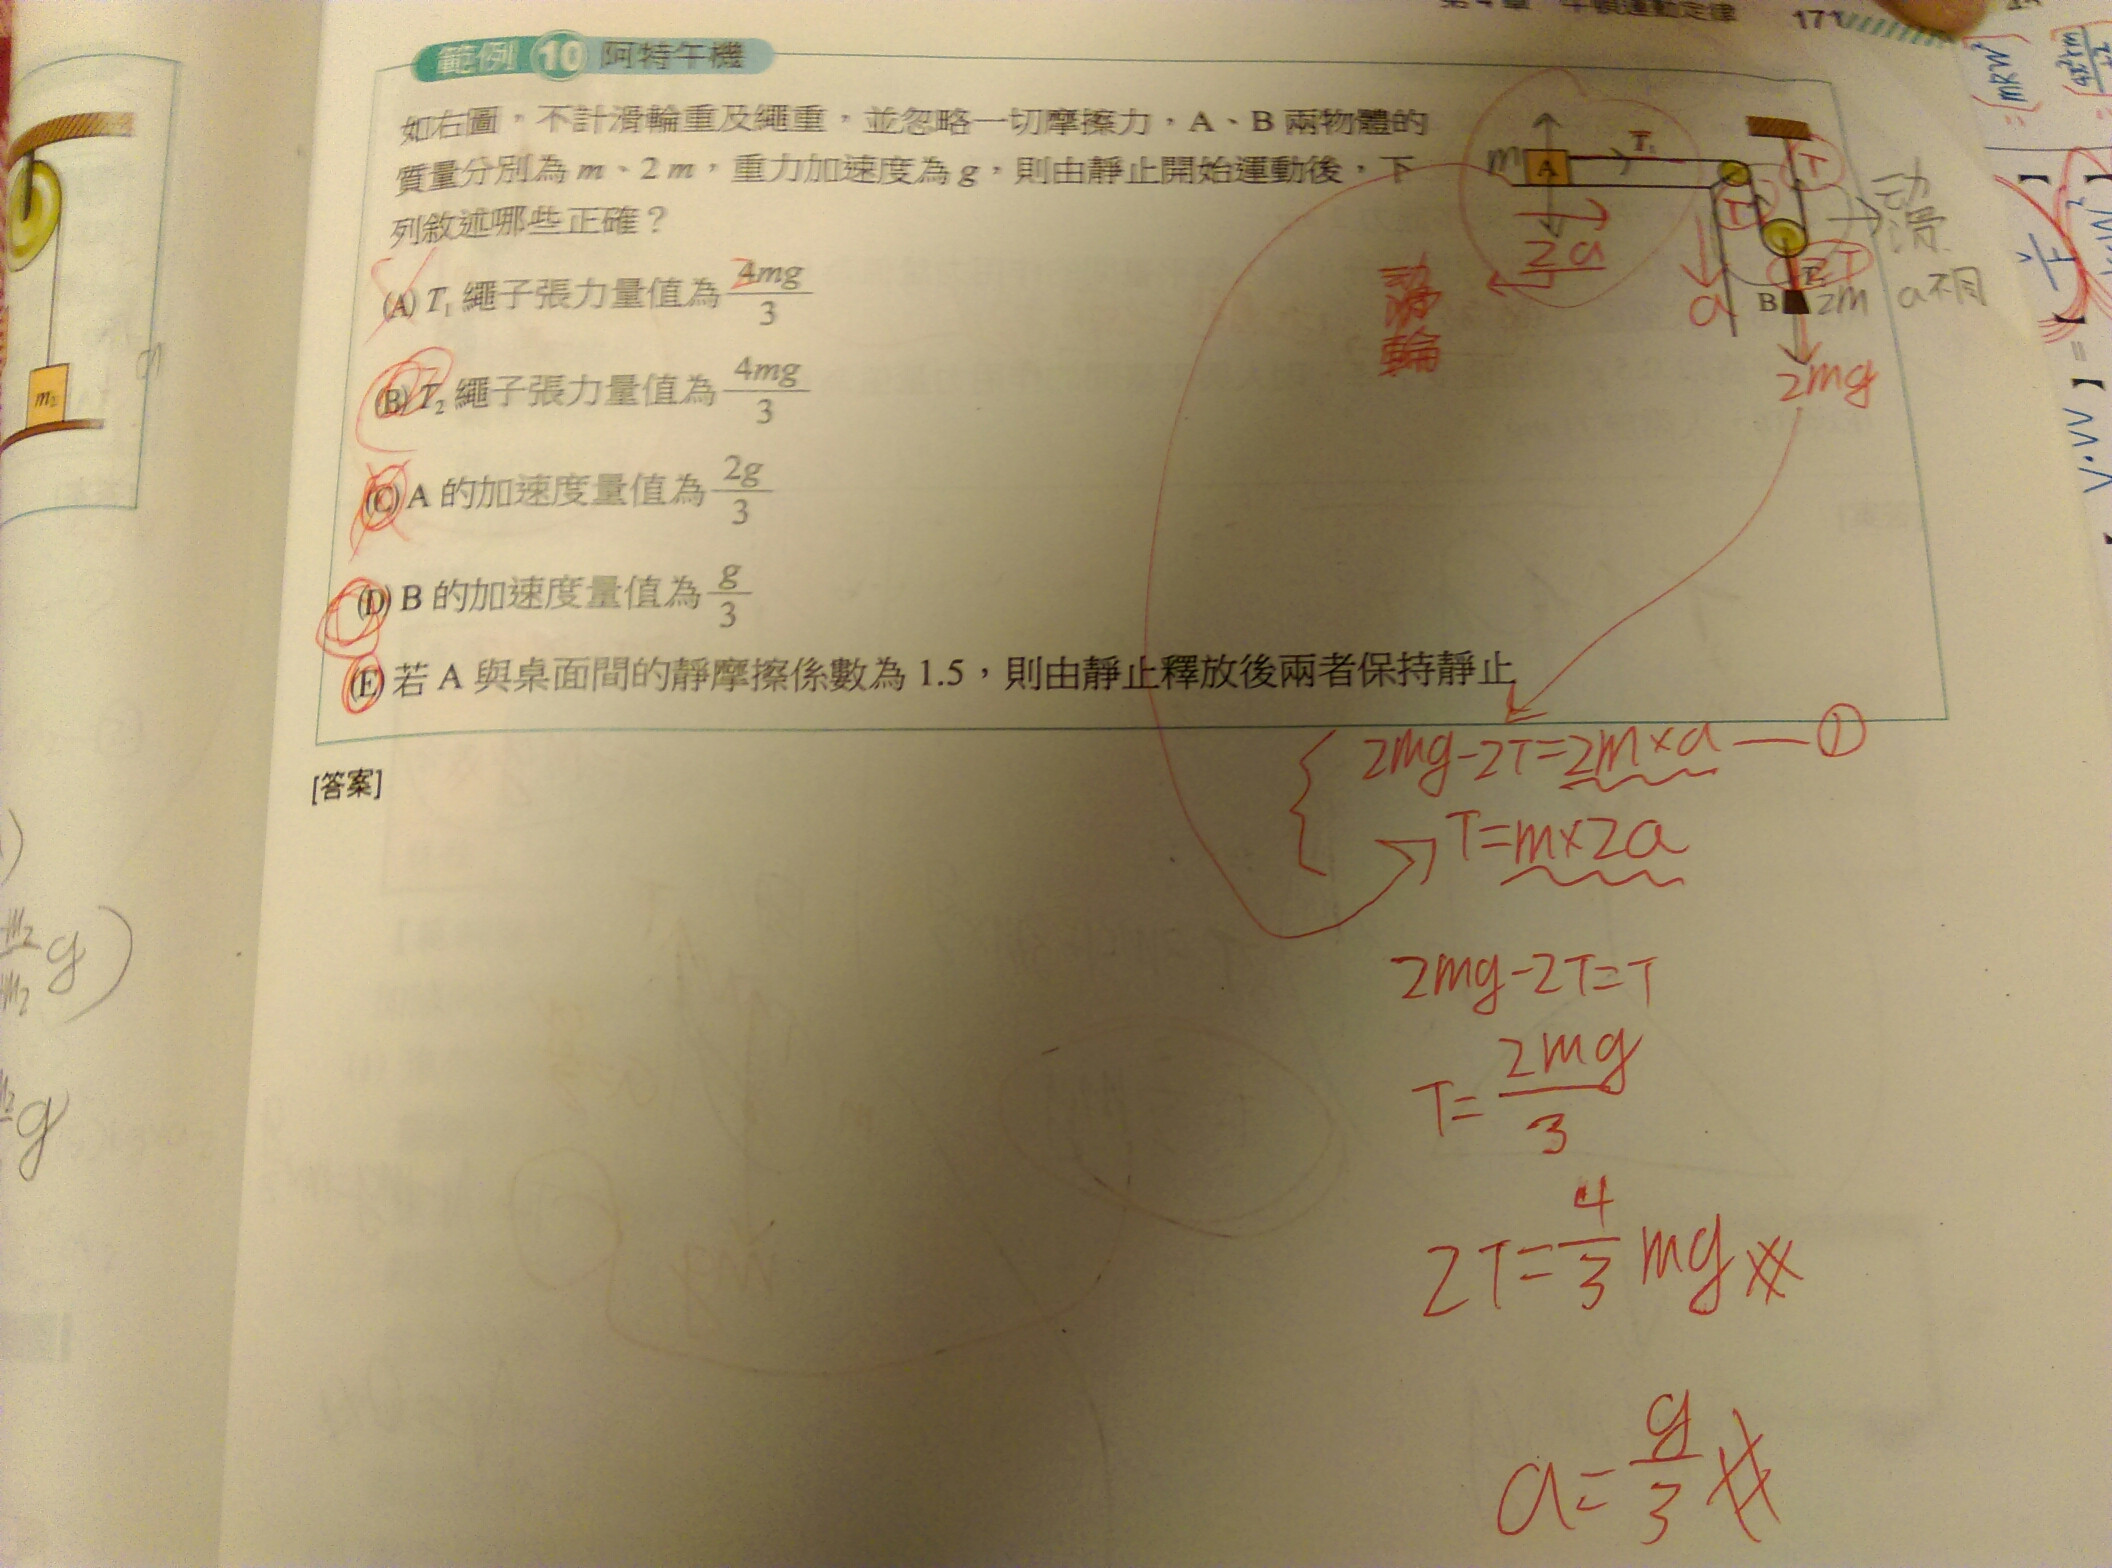 171
範例 10 阿特午機
如右圖，不計滑輪重及繩重，並忽略一切摩擦力，A、B 兩物體的
質量分別為 m、2 m，重力加速度為 g，則由靜止開始運動後，下
列敘述哪些正確？
(A) T₁ 繩子張力量值為 4mg/3
(B) T₂ 繩子張力量值為 4mg/3
(C) A 的加速度量值為 2g/3
(D) B 的加速度量值為 g/3
(E) 若 A 與桌面間的靜摩擦係數為 1.5，則由靜止釋放後兩者保持靜止
[答案]
m A T₁
T
T
2a
a
2T
B 2m
2mg
a不同
輪
2mg-2T=2m×a — ①
T=m×2a
2mg-2T=T
T=2mg/3
2T=4/3 mg
a=g/3
m₂
g)
g